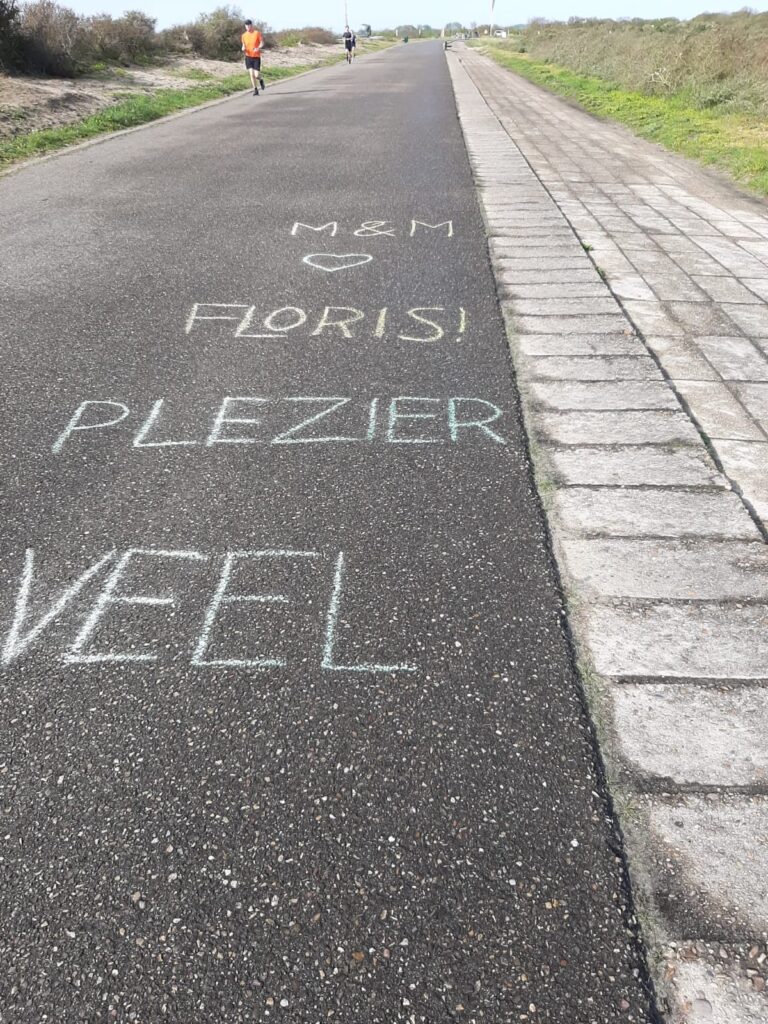 VEEL
PLEZIER
FLORIS!
♡
M&M